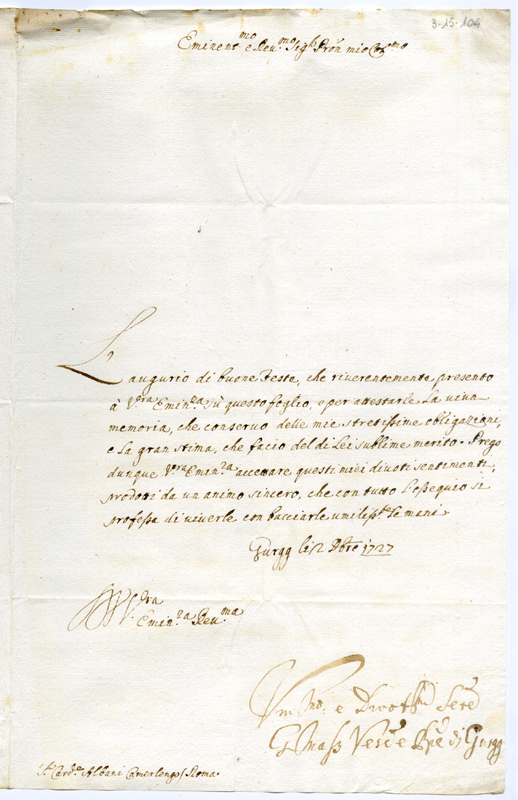 3-15-104
Eminen.mo e Reu.mo Sig.r Prõn mio Col.mo
L'augurio di buone Feste, che riuerentemente presento
à V.ra Emin.za sù questo foglio, e per attestarle la uiua
memoria, che conseruo delle mie stretissime obligazioni,
e la gran stima, che facio del di Lei sublime merito. Prego
dunque V.ra Emin.za accettare questi miei diuoti sentimenti,
prodotti da un animo sincero, che con tutto l'ossequio si
professa di uiuerle con bacciarle umiliss.te le mani.
Gurgg li 2 Xbre 1727
V.ra Emin.za Reu.ma
Um.mo e Divot.mo Ser.e
G Mass Vesc.e Ppe di Gurgg
S.r Card.e Albani Camerlengo / Roma